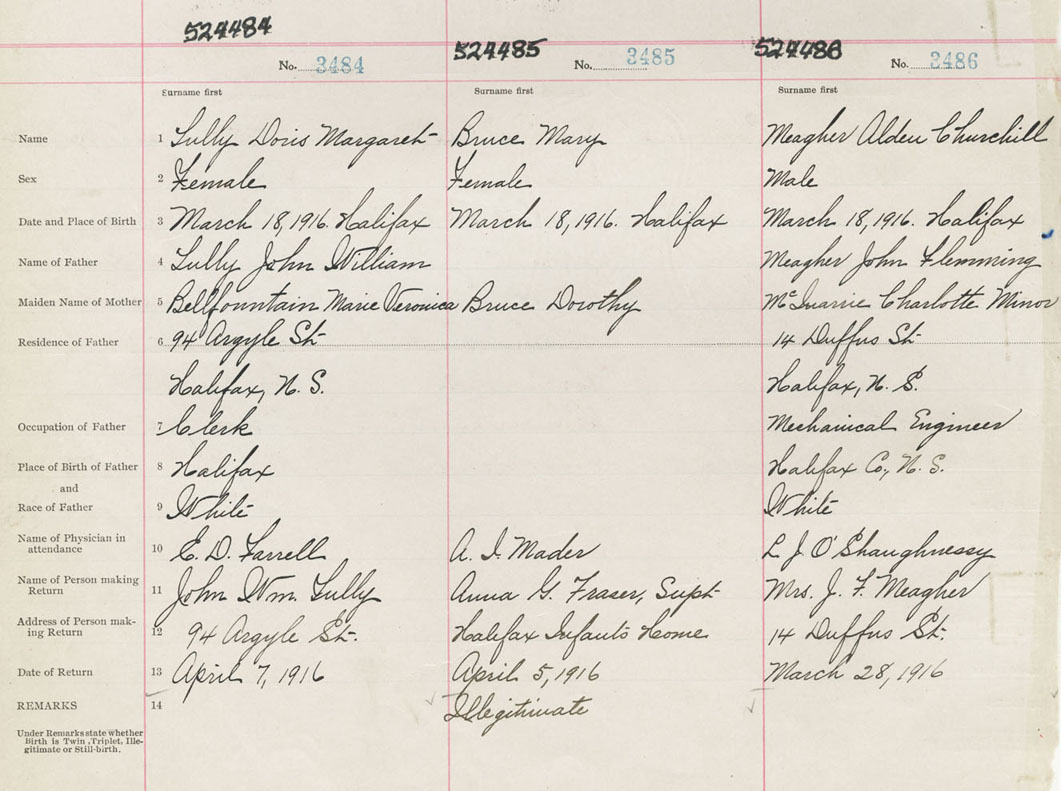 524484 524485 524486
No. 3484 No. 3485 No. 3486
Surname first Surname first Surname first
Name 1 Lully Doris Margaret Bruce Mary Meagher Alden Churchill
Sex 2 Female Female Male
Date and Place of Birth 3 March 18, 1916. Halifax March 18, 1916. Halifax March 18, 1916. Halifax
Name of Father 4 Lully John William Meagher John Flemming
Maiden Name of Mother 5 Bellfountain Marie Veronica Bruce Dorothy Charlotte Minor
Residence of Father 6 94 Argyle St 14 Duffus St
Halifax, N. S. Halifax, N. S.
Occupation of Father 7 Clerk Mechanical Engineer
Place of Birth of Father 8 Halifax Halifax Co., N. S.
and
Race of Father 9 White White
Name of Physician in
attendance 10 E. D. Farrell A. I. Mader L J O'Shaughnessy
Name of Person making
Return 11 John Wm. Lully Anna G. Fraser, Supt Mrs. J. F. Meagher
Address of Person mak-
ing Return 12 94 Argyle St. Halifax Infants Home 14 Duffus St.
Date of Return 13 April 7, 1916 April 5, 1916 March 28, 1916
REMARKS 14 Illegitimate
Under Remarks state whether
Birth is Twin, Triplet, Ille-
gitimate or Still-birth.